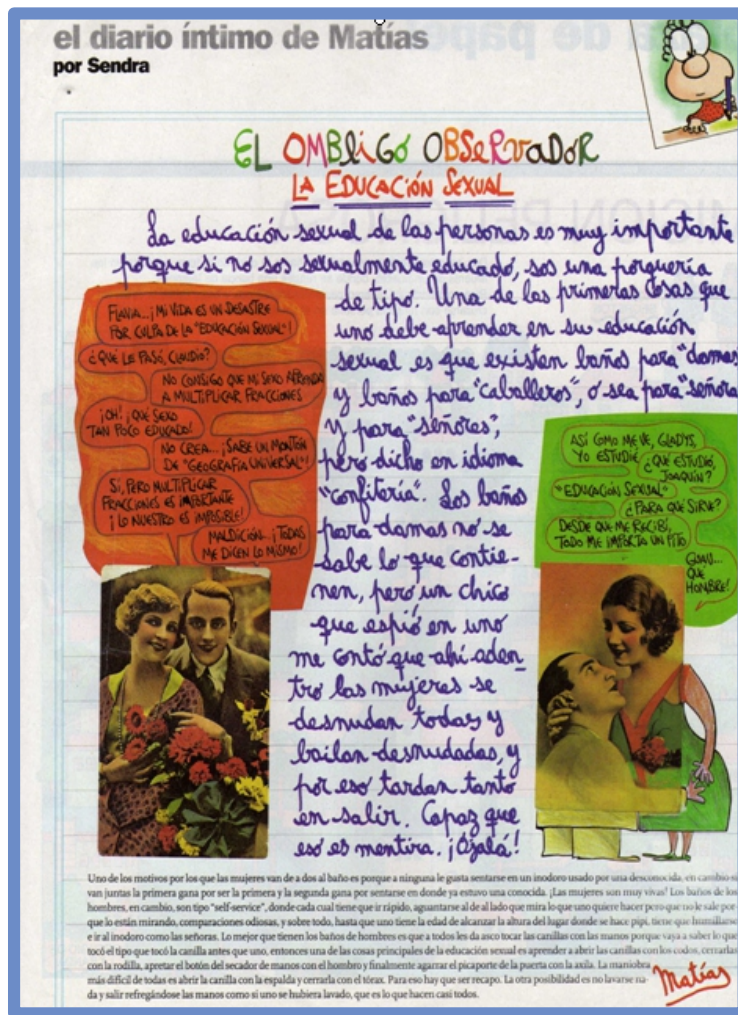 el diario íntimo de Matías
por Sendra
EL OMBLiGO OBSeRvaDoR
LA EDUCACIÓN SEXUAL
La educación sexual de las personas es muy importante
porque si no sos sexualmente educado, sos una porquería
de tipo. Una de las primeras cosas que
uno debe aprender en su educación
sexual es que existen baños para "damas
y baños para "caballeros", o sea para "señora
y para "señores",
pero dicho en idioma
"confitería". Los baños
para damas no se
sabe lo que contie-
nen, pero un chico
que espió en uno
me contó que ahí aden
tro las mujeres se
desnudan todas y
bailan desnudadas, y
por eso tardan tanto
en salir. Capaz que
eso es mentira. ¡Ojalá!
FLAVIA...¡MI VIDA ES UN DESASTRE
POR CULPA DE LA "EDUCACIÓN SEXUAL"!
¿QUÉ LE PASÓ, CLAUDIO?
NO CONSIGO QUE MI SEXO APRENDA
A MULTIPLICAR FRACCIONES
¡OH! ¡QUÉ SEXO
TAN POCO EDUCADO!
NO CREA... ¡SABE UN MONTÓN
DE "GEOGRAFÍA UNIVERSAL"!
SÍ, PERO MULTIPLICAR
FRACCIONES ES IMPORTANTE
¡LO NUESTRO ES IMPOSIBLE!
MALDICIÓN... ¡TODAS
ME DICEN LO MISMO!
ASÍ COMO ME VE, GLADYS,
YO ESTUDIÉ
¿QUÉ ESTUDIÓ,
JOAQUÍN?
"EDUCACIÓN SEXUAL"
¿PARA QUÉ SIRVE?
DESDE QUE ME RECIBÍ,
TODO ME IMPORTA UN PITO
GUAU...
QUÉ
HOMBRE!
Uno de los motivos por los que las mujeres van de a dos al baño es porque a ninguna le gusta sentarse en un inodoro usado por una desconocida, en cambio si
van juntas la primera gana por ser la primera y la segunda gana por sentarse en donde ya estuvo una conocida. ¡Las mujeres son muy vivas! Los baños de los
hombres, en cambio, son tipo "self-service", donde cada cual tiene que ir rápido, aguantarse al de al lado que mira lo que uno quiere hacer pero que no le sale por
que lo están mirando, comparaciones odiosas, y sobre todo, hasta que uno tiene la edad de alcanzar la altura del lugar donde se hace pipí, tiene que humillarse
e ir al inodoro como las señoras. Lo mejor que tienen los baños de hombres es que a todos les da asco tocar las canillas con las manos porque vaya a saber lo que
tocó el tipo que tocó la canilla antes que uno, entonces una de las cosas principales de la educación sexual es aprender a abrir las canillas con los codos, cerrarlas
con la rodilla, apretar el botón del secador de manos con el hombro y finalmente agarrar el picaporte de la puerta con la axila. La maniobra
más difícil de todas es abrir la canilla con la espalda y cerrarla con el tórax. Para eso hay que ser recapo. La otra posibilidad es no lavarse na-
da y salir refregándose las manos como si uno se hubiera lavado, que es lo que hacen casi todos.
Matías